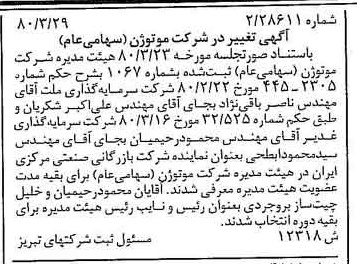 شماره ۲/۲۸۶۱۱ ۸۰/۳/۲۹
آگهی تغییر در شرکت موتوژن (سهامی‌عام)
باستناد صورتجلسه مورخه ۸۰/۳/۲۳ هیئت مدیره شرکت
موتوژن (سهامی‌عام) ثبت‌شده بشماره ۱۰۶۷ بشرح حکم شماره
۲۳۰۵ـ۴۴۵ مورخ ۸۰/۲/۲۲ شرکت سرمایه‌گذاری ملت آقای
مهندس ناصر باقی‌نژاد بجای آقای مهندس علی‌اکبر شکریان و
طبق حکم شماره ۳۲/۵۲۵ مورخ ۸۰/۳/۱۶ شرکت سرمایه‌گذاری
غدیر آقای مهندس محمودرحیمیان بجای آقای مهندس
سیدمحمودابطحی بعنوان نماینده شرکت بازرگانی صنعتی مرکزی
ایران در هیئت مدیره شرکت موتوژن (سهامی‌عام) برای بقیه مدت
عضویت هیئت مدیره معرفی شدند. آقایان محمودرحیمیان و خلیل
چیت‌ساز بروجردی بعنوان رئیس و نایب رئیس هیئت مدیره برای
بقیه دوره انتخاب شدند.
ش ۱۲۳۱۸ مسئول ثبت شرکتهای تبریز